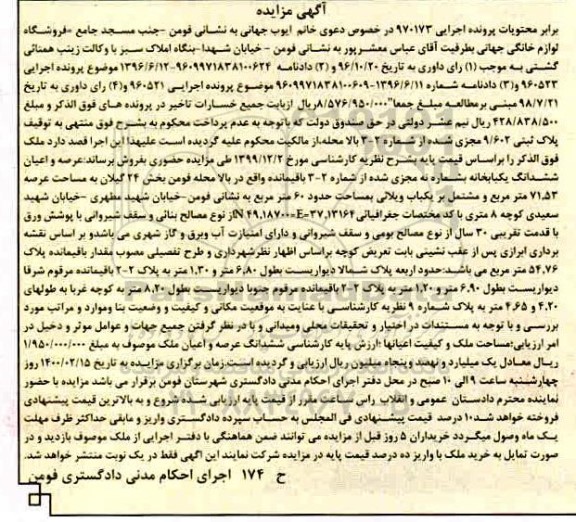 آگهی مزایده
برابر محتویات پرونده اجرایی ۹۷۰۱۷۳ در خصوص دعوی خانم ایوب جهانی به نشانی فومن -جنب مسجد جامع -فروشگاه
لوازم خانگی جهانی بطرفیت آقای عباس معشرپور به نشانی فومن - خیابان شهدا-بنگاه املاک سبز با وکالت زینب همتائی
گشتی به موجب (۱) رای داوری به تاریخ ۹۶/۱۰/۲۰ و (۲) دادنامه ۹۶۰۹۹۷۱۸۳۸۱۰۰۶۲۴-۱۳۹۶/۶/۱۲ موضوع پرونده اجرایی
۹۶۰۵۲۳ و(۳) دادنامه شماره ۱۳۹۶/۶/۱۱-۹۶۰۹۹۷۱۸۳۸۱۰۰۶۰۹ موضوع پرونده اجرایی ۹۶۰۵۲۱ و(۴) رای داوری به تاریخ
۹۸/۷/۲۱ مبنی برمطالعه مبلغ جمعا" ۸/۵۷۶/۹۵۰/۰۰۰ریال ازبابت جمیع خسارات تاخیر در پرونده های فوق الذکر و مبلغ
۴۲۸/۸۳۸/۵۰۰ ریال نیم عشر دولتی در حق صندوق دولت که باتوجه به عدم پرداخت محکوم به بشرح فوق منتهی به توقیف
پلاک ثبتی ۹/۶۰۲ مجزی شده از شماره ۲-۳ بالا محله،از مالکیت محکوم علیه گردیده است علیهذا این اجرا قصد دارد ملک
فوق الذکر را براساس قیمت پایه بشرح نظریه کارشناسی مورخ ۱۳۹۹/۱۲/۲ طی مزایده حضوری بفروش برساند:عرصه و اعیان
ششدانگ یکبابخانه بشماره نه مجزی شده از شماره ۲-۳ باقیمانده واقع در بالا محله فومن بخش ۲۴ گیلان به مساحت عرصه
۷۱.۵۳ متر مربع و مشتمل بر یکباب ویلائی بمساحت حدود ۶۰ متر مربع به نشانی فومن-خیابان شهید مطهری -خیابان شهید
سعیدی کوچه ۸ متری با کد مختصات جغرافیائی N ۴۹.۱۸۷۰۰=E=۳۷,۱۳۱۶۴از نوع مصالح بنائی و سقف شیروانی با پوشش ورق
با قدمت تقریبی ۳۰ سال از نوع مصالح بومی و سقف شیروانی و دارای امتیازت آب وبرق و گاز شهری می باشدو بر اساس نقشه
برداری ابرازی پس از عقب نشینی بابت تعریض کوچه براساس اظهار نظرشهرداری و طرح تفصیلی مصوب مقدار باقیمانده پلاک
۵۴.۷۶ متر مربع می باشد:حدود اربعه پلاک شمالا دیواریست بطول ۶.۸۰ متر و ۱.۳۰ متر به پلاک ۲-۲ باقیمانده مرقوم شرقا
دیواریست بطول ۶.۹۰ مترو ۱.۲۰ متر به پلاک ۲-۲ باقیمانده مرقوم جنوبا دیواریست بطول ۸.۲۰ متر به کوچه غربا به طولهای
۴.۲۰ و ۴.۶۵ متر به پلاک شماره ۹ نظریه کارشناسی با عنایت به موقعیت مکانی و کیفیت و وضعیت بنا وموارد و مراتب مورد
بررسی و با توجه به مستندات در اختیار و تحقیقات محلی ومیدانی و با در نظر گرفتن جمیع جهات و عوامل موثر و دخیل در
امر ارزیابی؛مساحت ملک و کیفیت اعیانها ؛ارزش پایه کارشناسی ششدانگ عرصه و اعیان ملک موصوف به مبلغ ۱/۹۵۰/۰۰۰/۰۰۰
ریال معادل یک میلیارد و نهصد وپنجاه میلیون ریال ارزیابی و گردیده است.زمان برگزاری مزایده به تاریخ ۱۴۰۰/۰۲/۱۵ روز
چهارشنبه ساعت ۹ الی ۱۰ صبح در محل دفتر اجرای احکام مدنی دادگستری شهرستان فومن برقرار می باشد مزایده با حضور
نماینده محترم دادستان عمومی و انقلاب راس ساعت مقرر از قیمت پایه ارزیابی شده شروع و به بالاترین قیمت پیشنهادی
فروخته خواهد شد۱۰ درصد قیمت پیشنهادی فی المجلس به حساب سپرده دادگستری واریز و مابقی حداکثر ظرف مهلت
یک ماه وصول میگردد خریداران ۵ روز قبل از مزایده می توانند ضمن هماهنگی با دفتر اجرایی از ملک موصوف بازدید و در
صورت تمایل به خرید ملک با واریز ده درصد قیمت پایه در مزایده شرکت نمایند این آگهی فقط در یک نوبت منتشر خواهد شد.
ح ۱۷۴ اجرای احکام مدنی دادگستری فومن